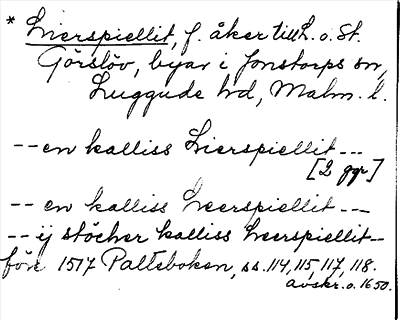 * Lierspiellit, f. åker till L. o. St.
Görslöv, byar i Jonstorps sn,
Luggude hd, Malm. l.
-- en kalliss Lierspiellit ---
[2 ggr]
-- en kalliss Leerspiellit ---
-- ij stöcher kalliss Leerspiellit --
före 1517 Palteboken, ss. 114, 115, 117, 118.
avskr. o. 1650.